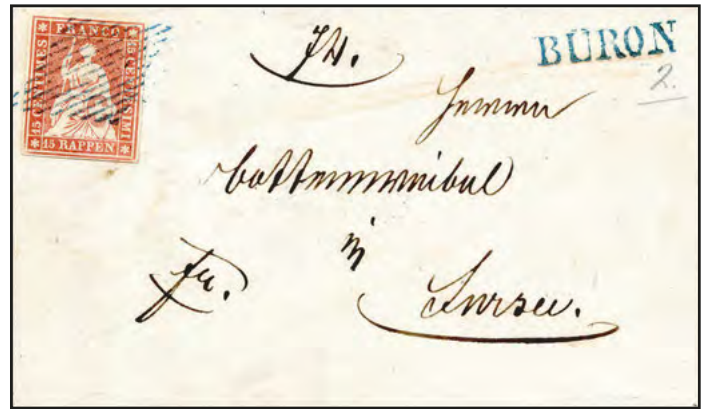 FRANCO
15 CENTIMES
15 CENTESIMI
15 RAPPEN
BÜRON
2.
Herrn
Bottenweibel
in
fr.
Sursee.